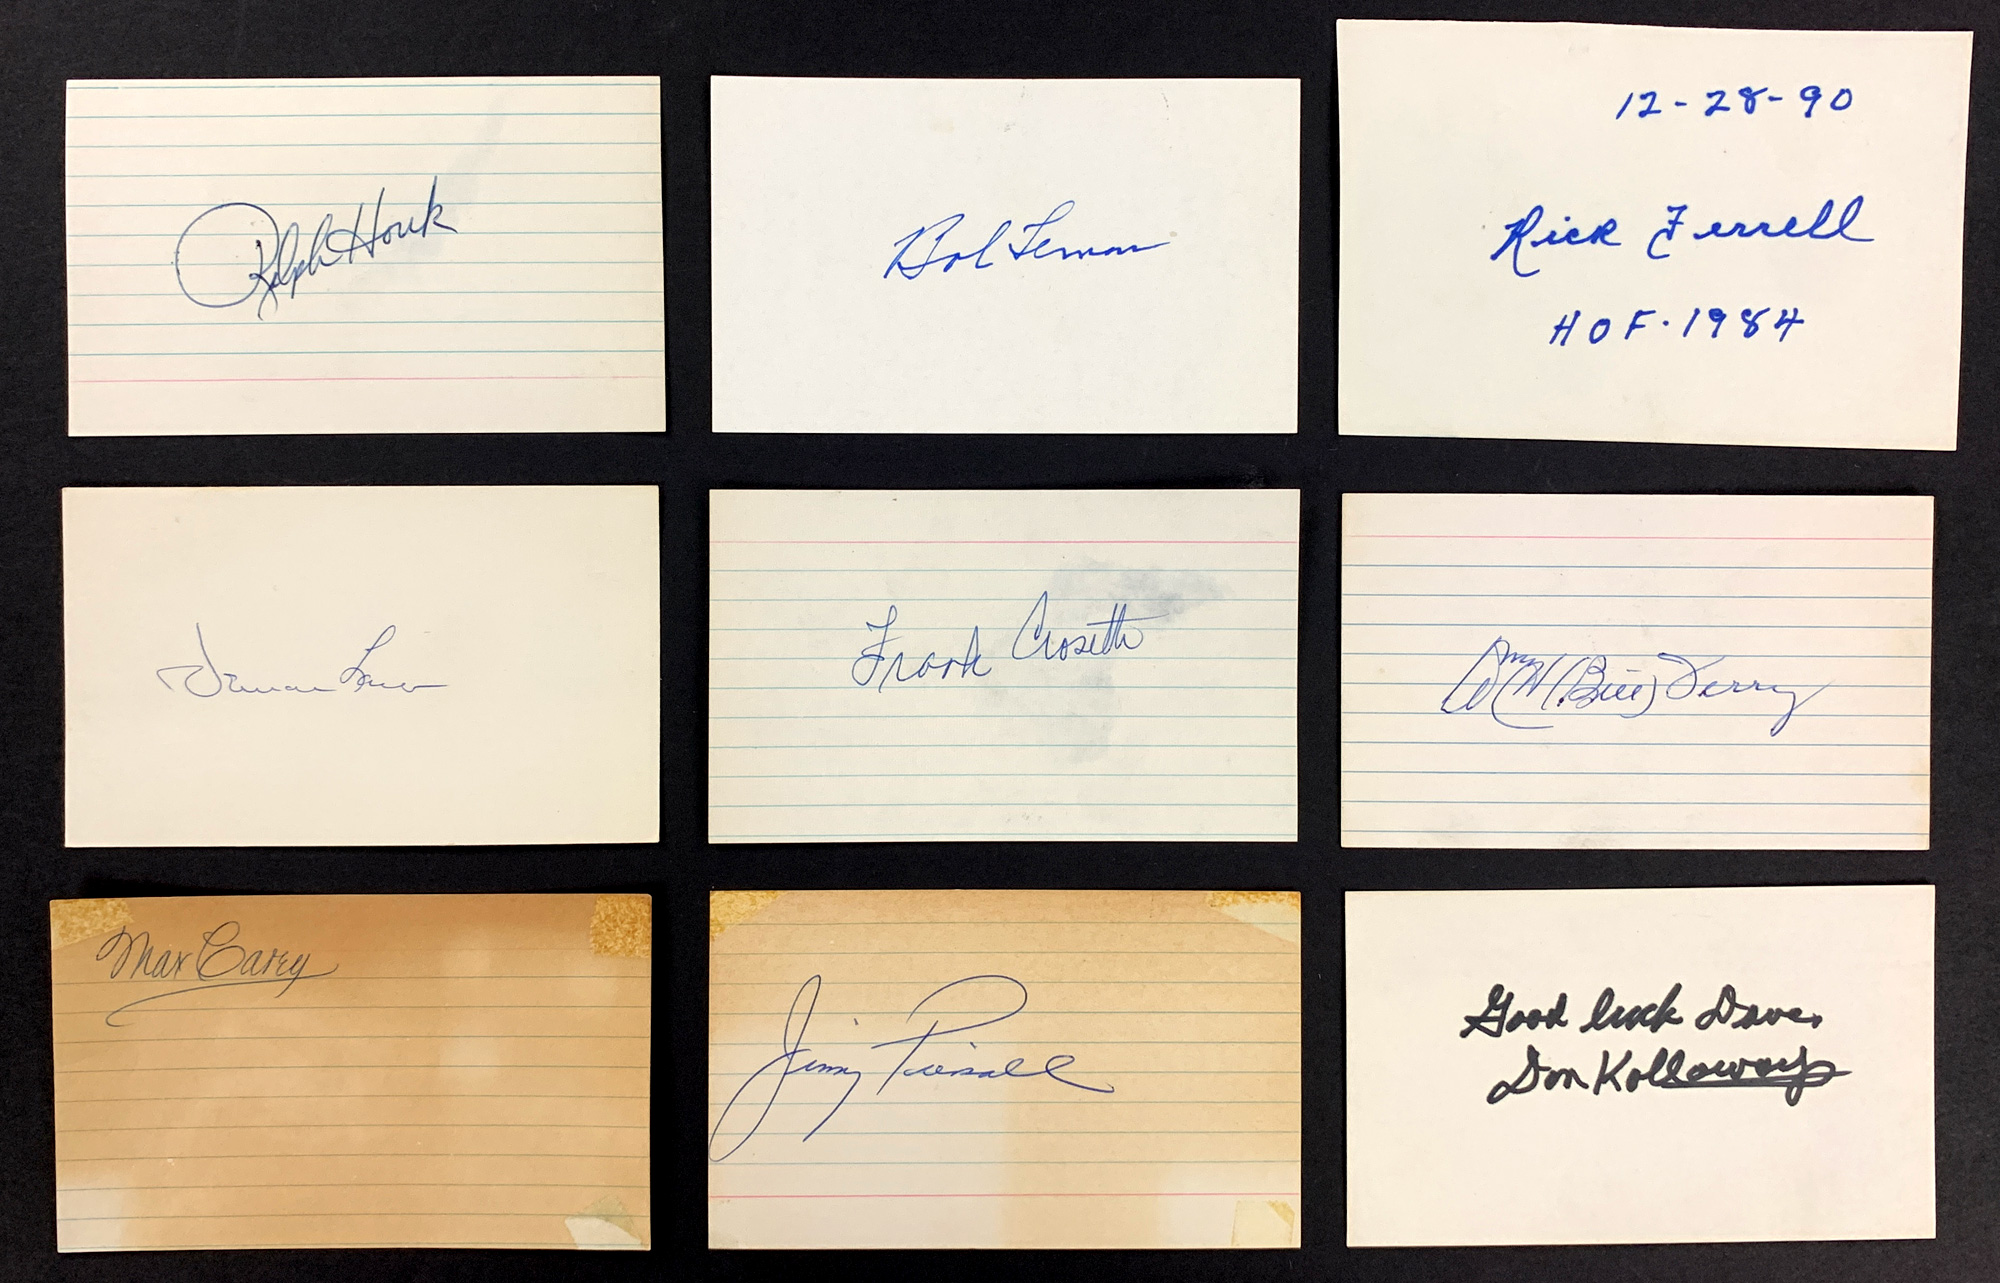 Ralph Houk
Bob Lemon
12-28-90
Rick Ferrell
HOF. 1984
Frank Crosetti
Wm H (Bill) Terry
Max Carey
Jim Piersall
Good luck Dave,
Don Kolloway